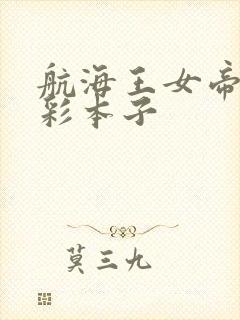 航海王女帝
彩本子
莫三九